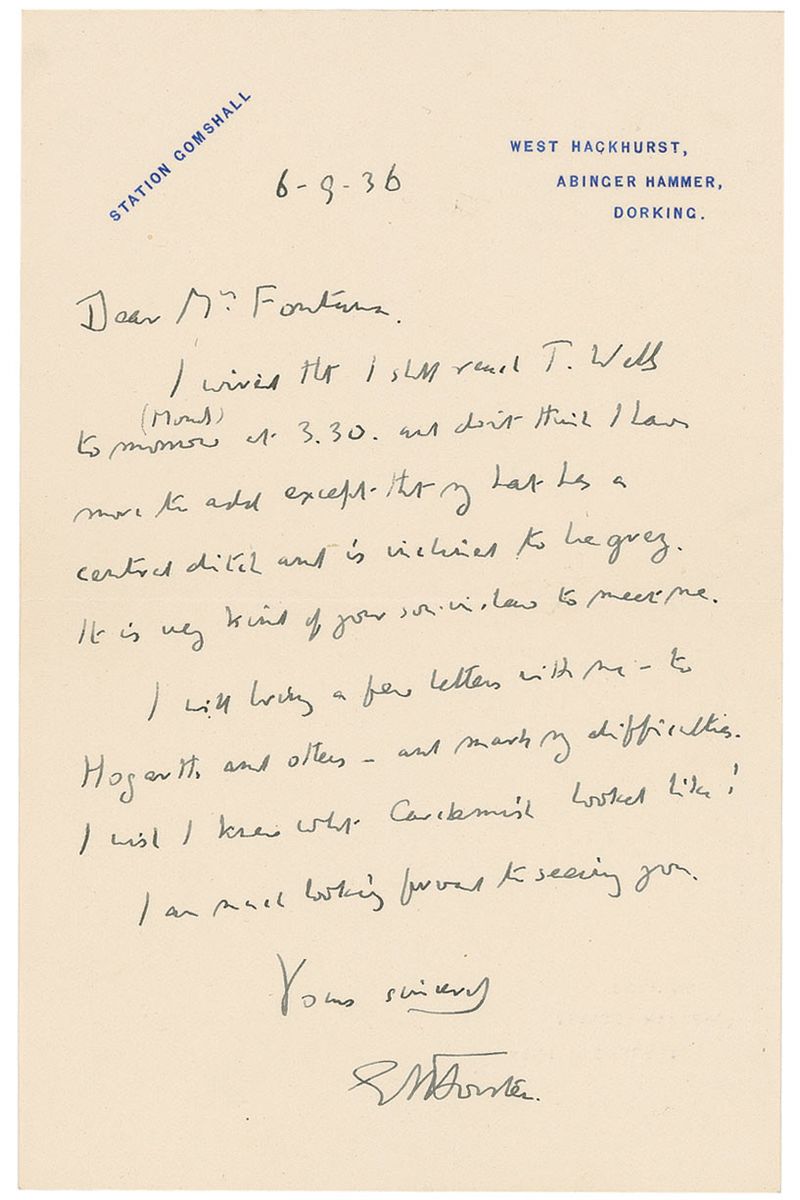 STATION GOMSHALL
WEST HACKHURST,
ABINGER HAMMER,
DORKING.
6-9-36
Dear Mrs Fontana.
I wired tht I shll reach T. Wells
(Mond)
to morrow at 3.30. and don't think I have
more to add except tht my hat has a
central ditch and is inclined to be grey.
It is very kind of your son-in-law to meet me.
I will bring a few letters with me - to
Hogarth and others - and mark my difficulties.
I wish I knew what Carchemish looked like!
I am much looking forward to seeing you.
Yours sincerely
EMForster.